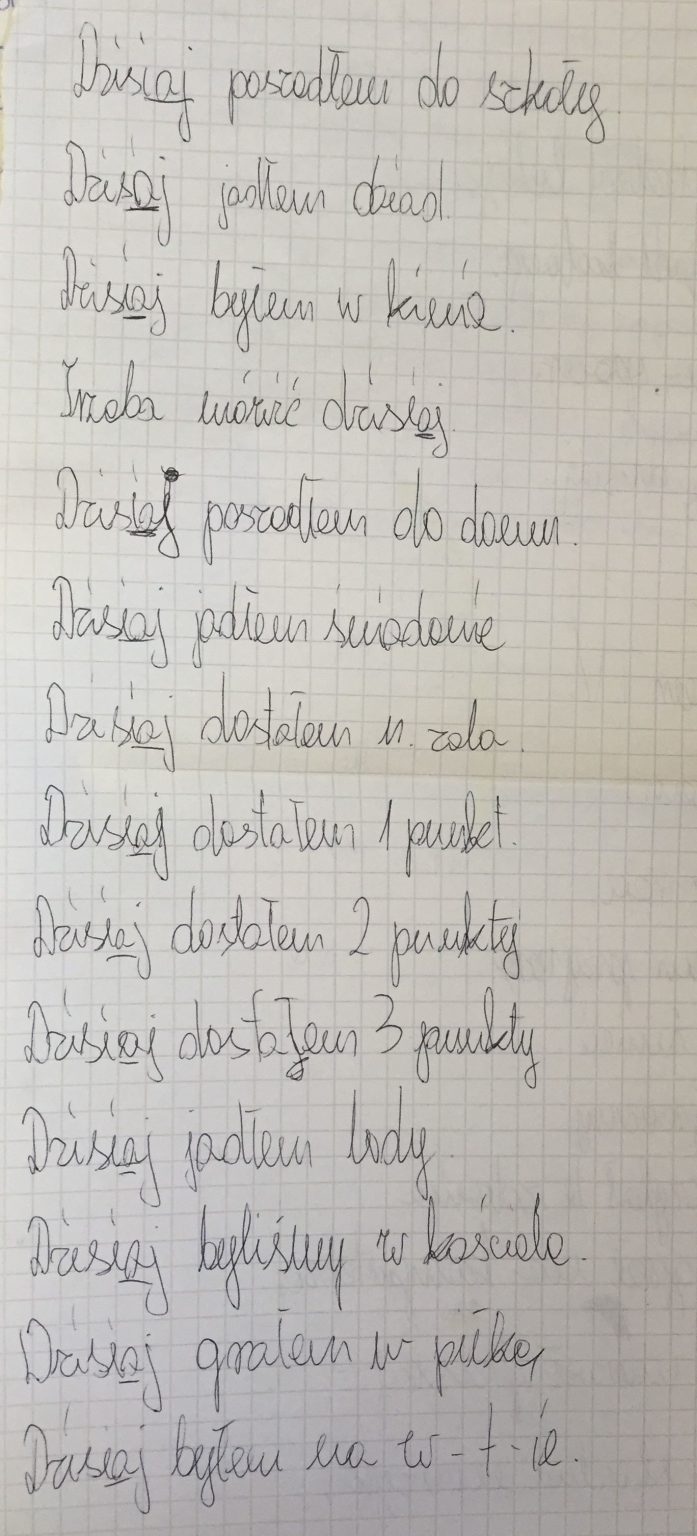 Dzisiaj poszedłem do szkoły.
Dzisiaj jadłem obiad.
Dzisiaj byłem w kinie.
Trzeba mówić dzisiaj.
Dzisiaj poszedłem do domu.
Dzisiaj jadłem śniadanie
Dzisiaj dostałem n. zela.
Dzisiaj dostałem 1 punkt.
Dzisiaj dostałem 2 punkty
Dzisiaj dostałem 3 punkty
Dzisiaj jadłem lody.
Dzisiaj byliśmy w kościele.
Dzisiaj grałem w piłkę,
Dzisiaj byłem na w-f-ie.